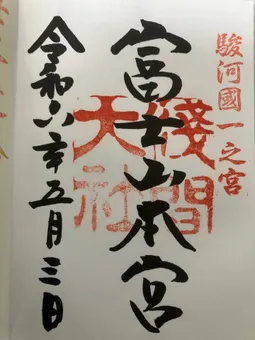 駿河國一之宮
富士山本宮
淺間大社
令和六年五月三日